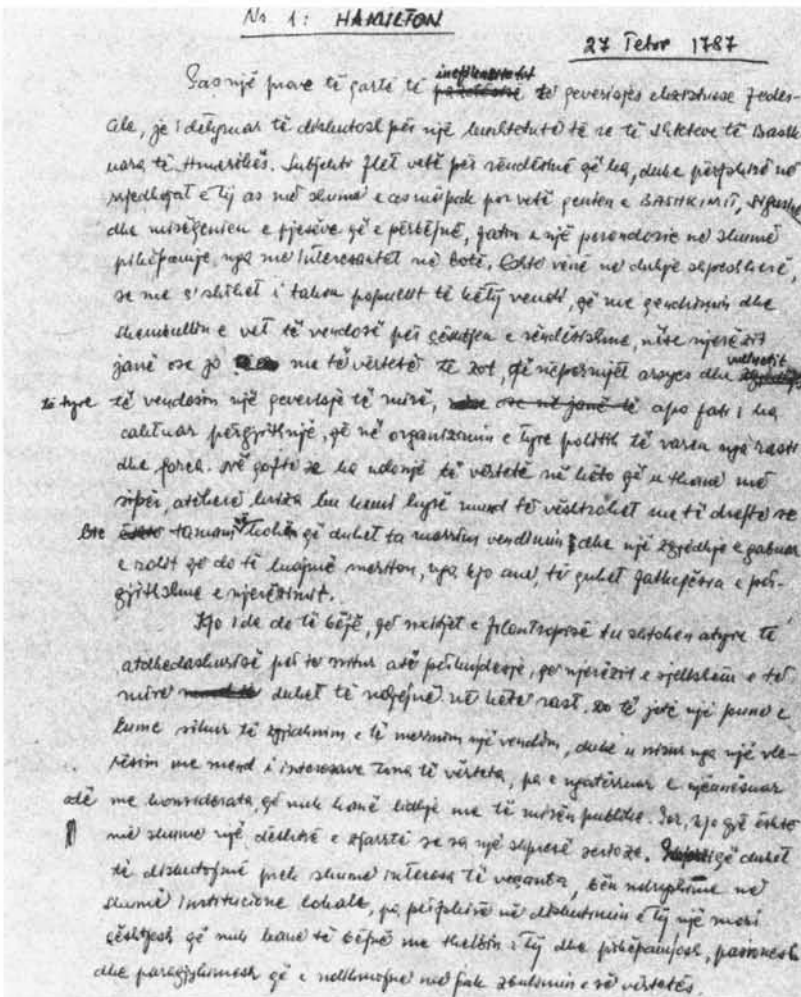 No 1: HAMILTON
27 Tetor 1787
Pas një prove të qartë të inefficensitetit të qeverisjes ekzistuese Feder-
ale, je i detyruar të diskutosh për një kushtetutë të re të Shteteve të Bash-
kuara të Amerikës. Subjekti flet vetë për rëndësinë që ka, duke përfshirë në
rrjedhojat e tij as më shumë e as më pak por vetë qenien e BASHKIMIT, sigurinë
dhe mirëqenien e pjesëve që e përbëjnë, fatin e një perandorie në shumë
pikëpamje, nga më interesantet në botë. Është vënë në dukje shpeshherë,
se me s'shihet i takon popullit të këtij vendi, që me qendrimin dhe
shembullin e vet të vendosë për çështjen e rëndësishme, nëse njerëzit
janë ose jo me të vërtetë të zot, që nëpërmjet arsyes dhe vullnetit
të tyre të vendosin një qeverisje të mirë, apo fati i ka
caktuar përgjithnjë, që në organizimin e tyre politik të varen nga rasti
dhe forca. Në qoftë se ka ndonjë të vërtetë në këto që u thanë më
sipër, atëherë kriza ku kemi hyrë mund të vështrohet me të drejtë se
bie tamam në kohën që duhet ta marrim vendimin dhe një zgjedhje e gabuar
e rolit që do të luajmë meriton, nga kjo anë, të quhet fatkeqësia e për-
gjithshme e njerëzimit.
Kjo ide do të bëjë, që nxitjet e filantropisë t'u shtohen atyre të
atdhedashurisë për të rritur atë përkujdesje, që njerëzit e sjellshëm e të
mirë duhet të ndjejnë në këtë rast. Do të jetë një punë e
lume sikur të zgjidhnim e të merrnim një vendim, duke u nisur nga një vle-
rësim me mend i interesave tona të vërteta, pa e ngatërruar e njëanësuar
atë me konsiderata, që nuk kanë lidhje me të mirën publike. Por, kjo gjë është
më shumë një dëshirë e zjarrtë se sa një shpresë serioze. që duhet
të diskutojmë prek shumë interesa të veçanta, bën ndryshime në
shumë institucione lokale, pa përfshirë në diskutimin e tij një mori
çështjesh që nuk kanë të bëjnë me thelbin e tij dhe pikëpamjesh, pasionesh
dhe paragjykimesh që e ndihmojnë më pak zbulimin e së vërtetës.